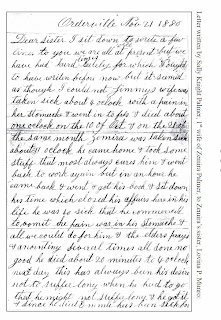 Orderville Nov 21 1890
Dear Sister I sit down to write a few
lines to you we are all at present but we
have had hard luck, for which I ought
to have written before now but it seemed
as though I could not Jimmys wife was
taken sick about 4 oclock with a pain in
her stomache & went in to fits & died about
one oclock on the 10 of Oct & on the
the same month Zemira was taken sick
about 11 oclock he came home & took some
stuff that most always cures him & went
back to work again but in an hour he
came back & went & got his book & sit down
his time which closed his affairs here in this
life he was so sick that he commenced
to vomit the pain was in his stomache &
all we could do for him & the elders prayes
& anointing several times all done no
good he died about 20 minutes to 4 oclock
next day this has always been his desire
not to suffer long when he had to go
that he might not suffer long & he got it
& since he died Emmie has been sick
Letter written by Sally Knight Palmer, 1st wife of Zemira Palmer, to Zemira's sister, Lovina P. Munro